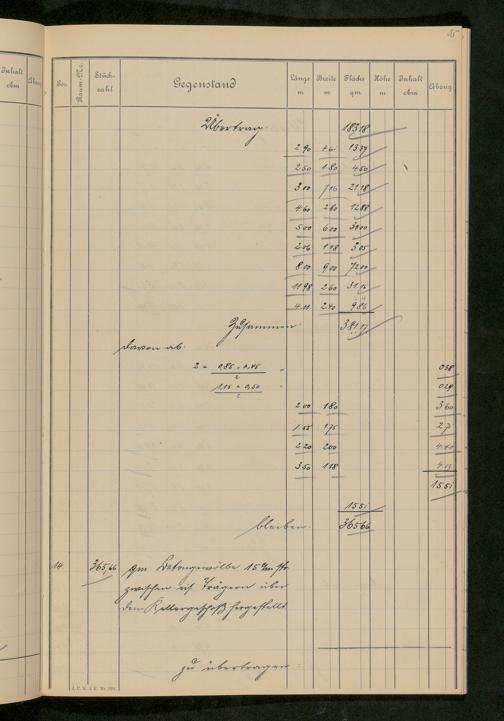 Inhalt
cbm
Abzug
Pos.
Raum-No.
Stück-
zahl
Gegenstand
Länge
m
Breite
m
Fläche
qm
Höhe
m
Inhalt
cbm
Abzug
Übertrag
183 18
2 90 13 39
2 50 1 80 4 50
3 00 7 06 21 18
4 60 2 80 12 88
5 00 6 00 30 00
2 06 1 48 3 05
8 00 9 00 72 00
11 98 2 60 31 15
4 11 2 40 9 86
Zusammen: 381 17
Davon ab:
2 × 0,85 × 0,45 0 38
2
1,15 × 0,50 0 29
2
2 00 1 80 3 60
1 55 1 75 2 71
2 20 2 00 4 40
3 50 1 18 4 13
15 51
15 51
bleiben: 365 66
14 365,66 qm Betongewölbe 15 cm stk
zwischen eis Trägern über
dem Kellergeschoß hergestellt
zu übertragen: